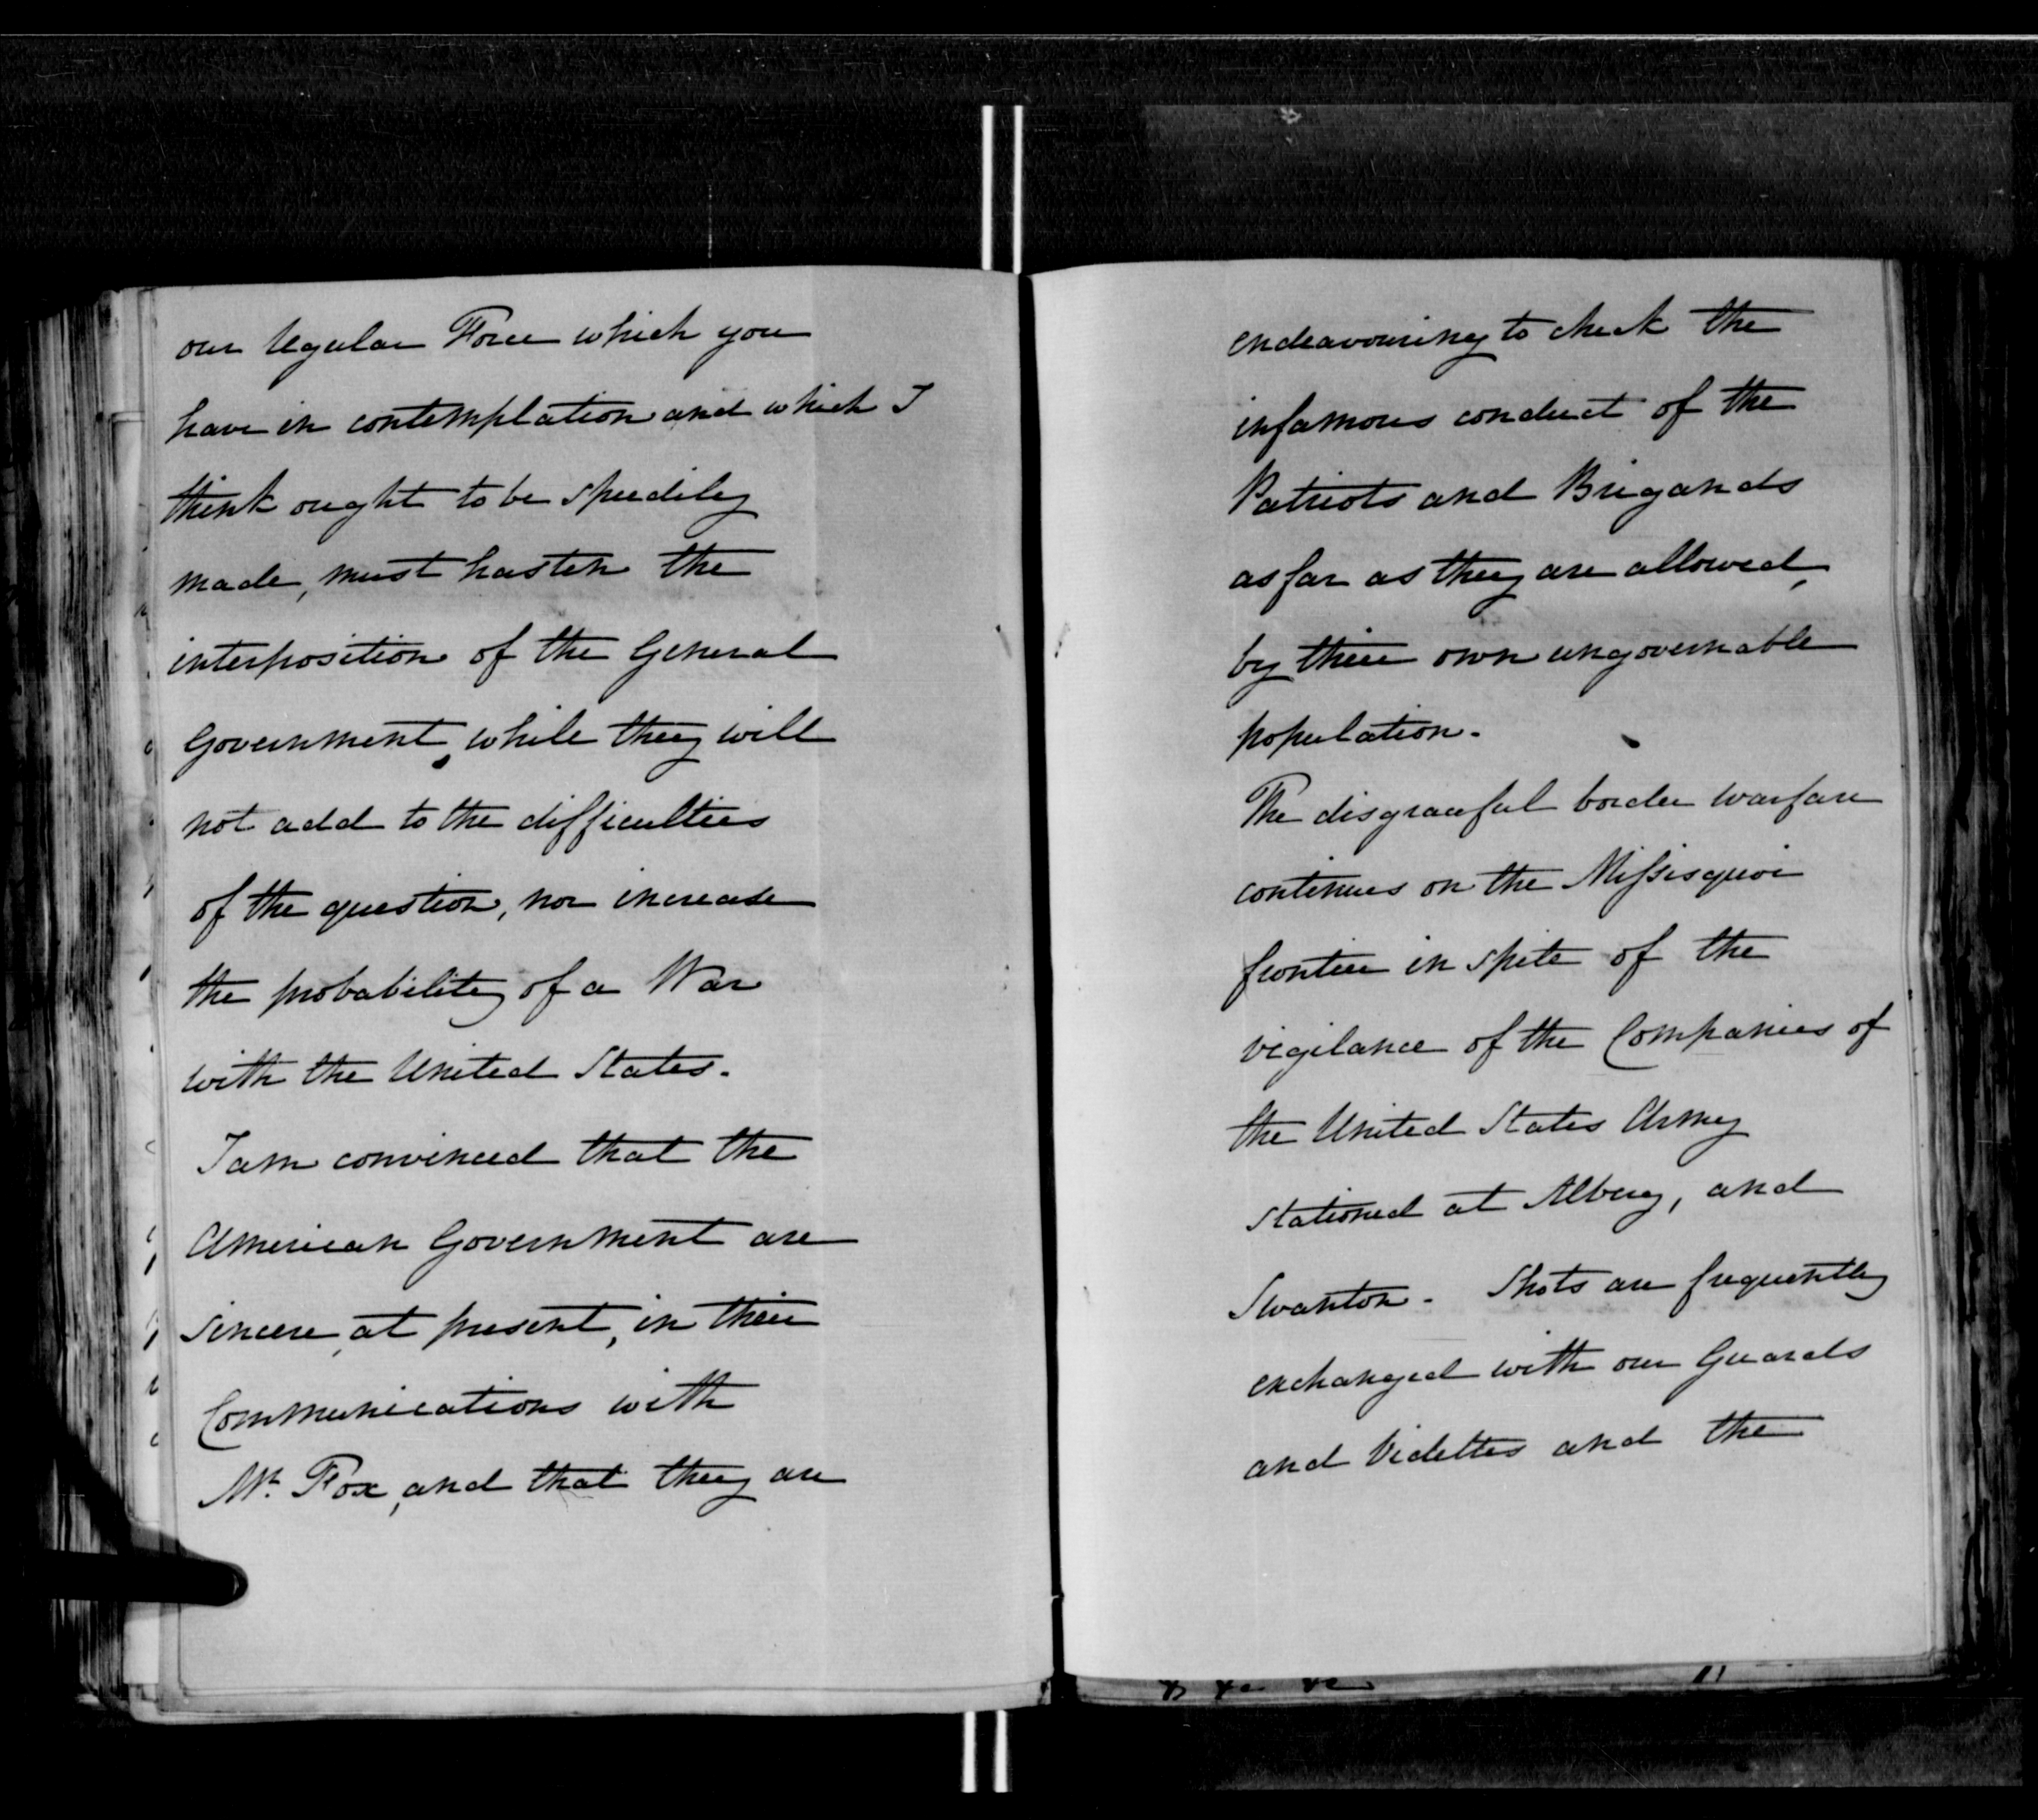 our regular Force which you
have in contemplation and which I
think ought to be speedily
made, must hasten the
interposition of the General
Government, while they will
not add to the difficulties
of the question, nor increase
the probability of a War
with the United States.
I am convinced that the
American Government are
sincere, at present, in their
Communications with
Mr. Fox, and that they are
endeavouring to check the
infamous conduct of the
Patriots and Brigands
as far as they are allowed,
by their own ungovernable
population.
The disgraceful border warfare
continues on the Missisquoi
frontier in spite of the
vigilance of the Companies of
the United States Army
stationed at Alburg, and
Swanton. Shots are frequently
exchanged with our Guards
and Videttes and the